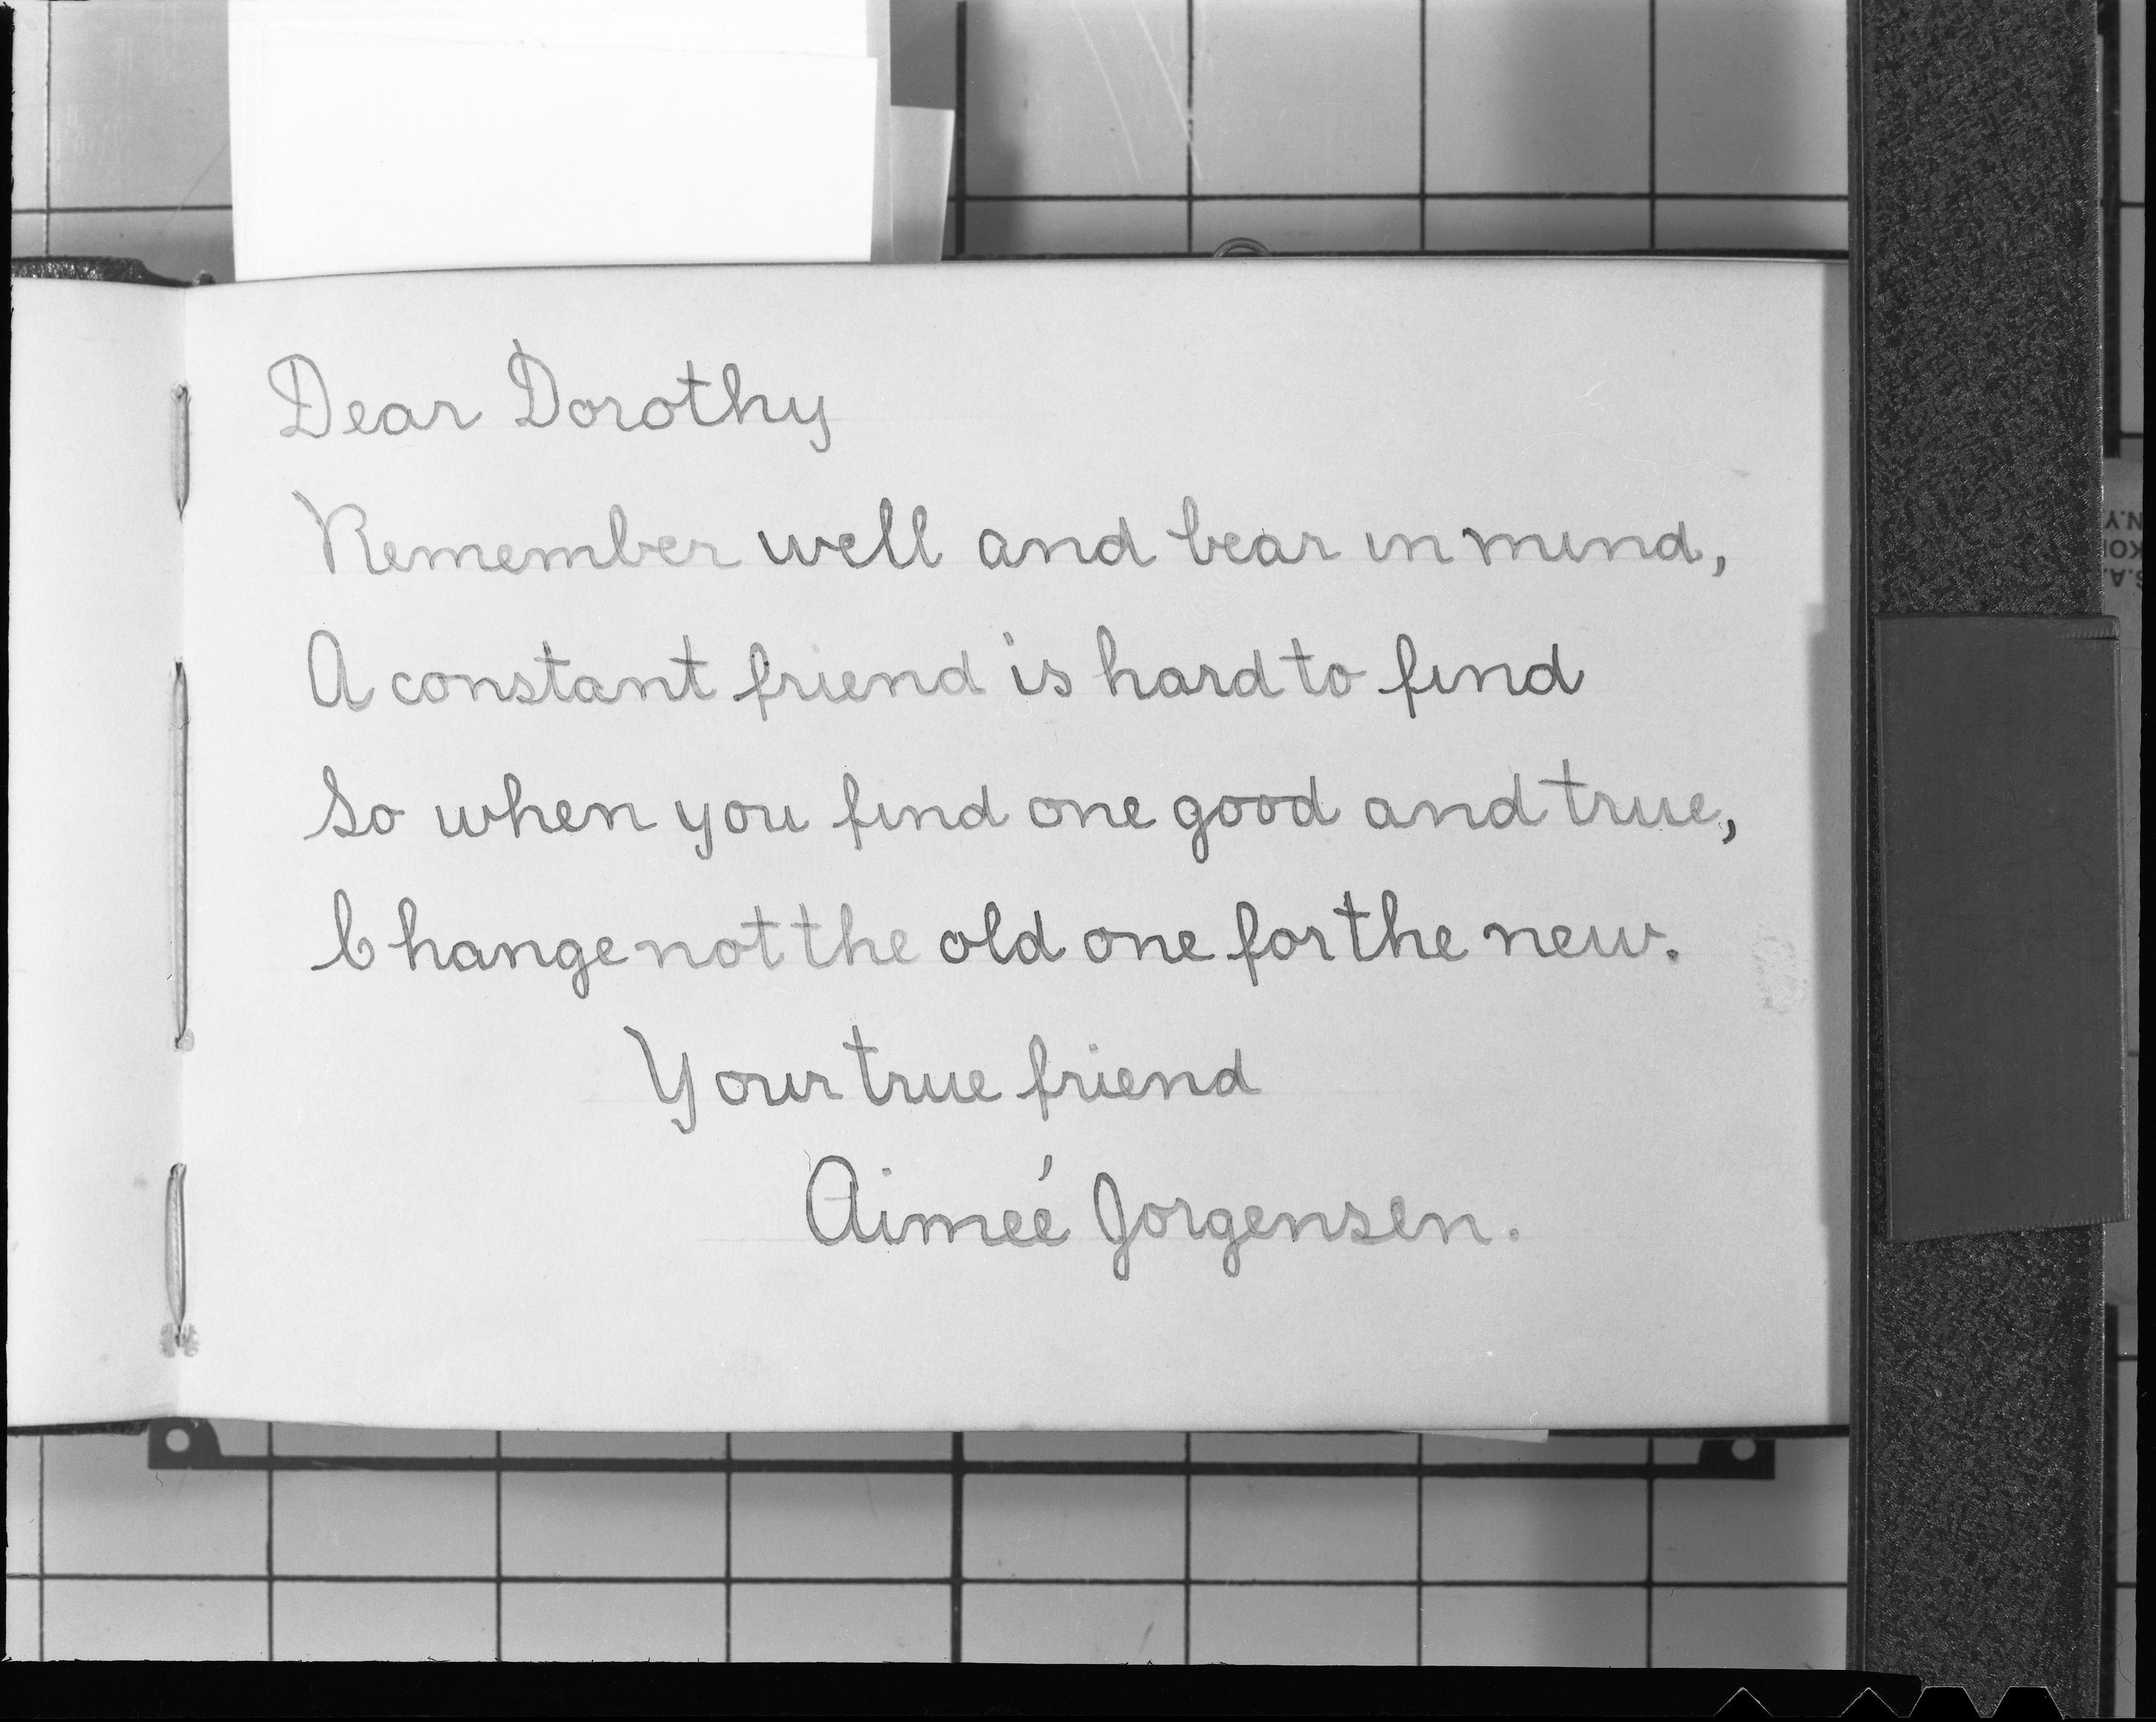 Dear Dorothy
Remember well and bear in mind,
A constant friend is hard to find
So when you find one good and true,
Change not the old one for the new.
Your true friend
Aimeé Jorgensen.
N.Y